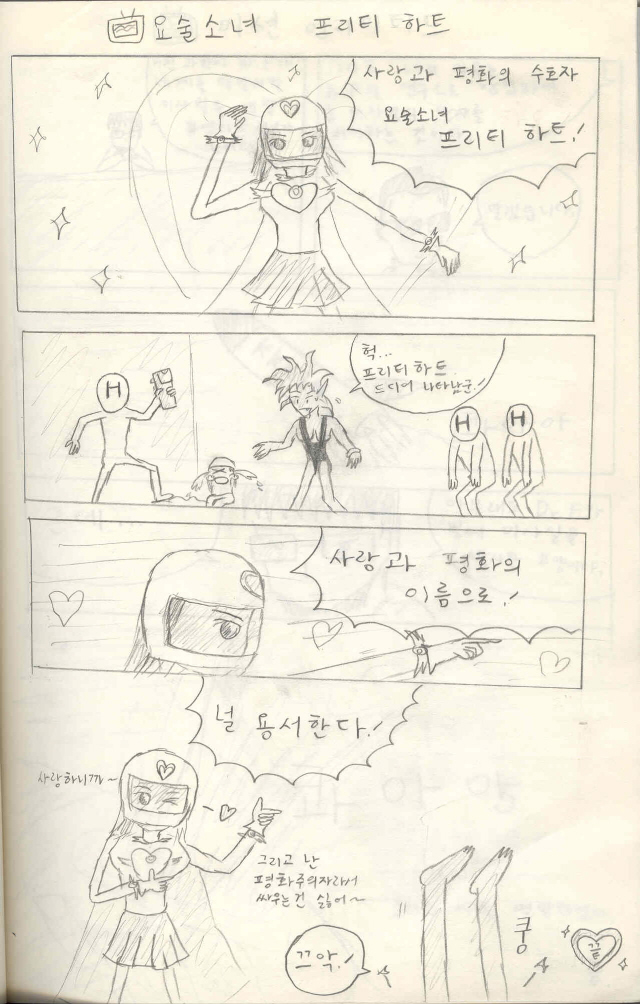 요술소녀 프리티 하트
사랑과 평화의 수호자
요술소녀
프리티 하트!
헉...
프리티 하트
드디어 나타났군!
H
H
H
사랑과 평화의
이름으로!
널 용서한다!
사랑하니까~
그리고 난
평화주의자라서
싸우는건 싫어~
끄악!
쿵
끝